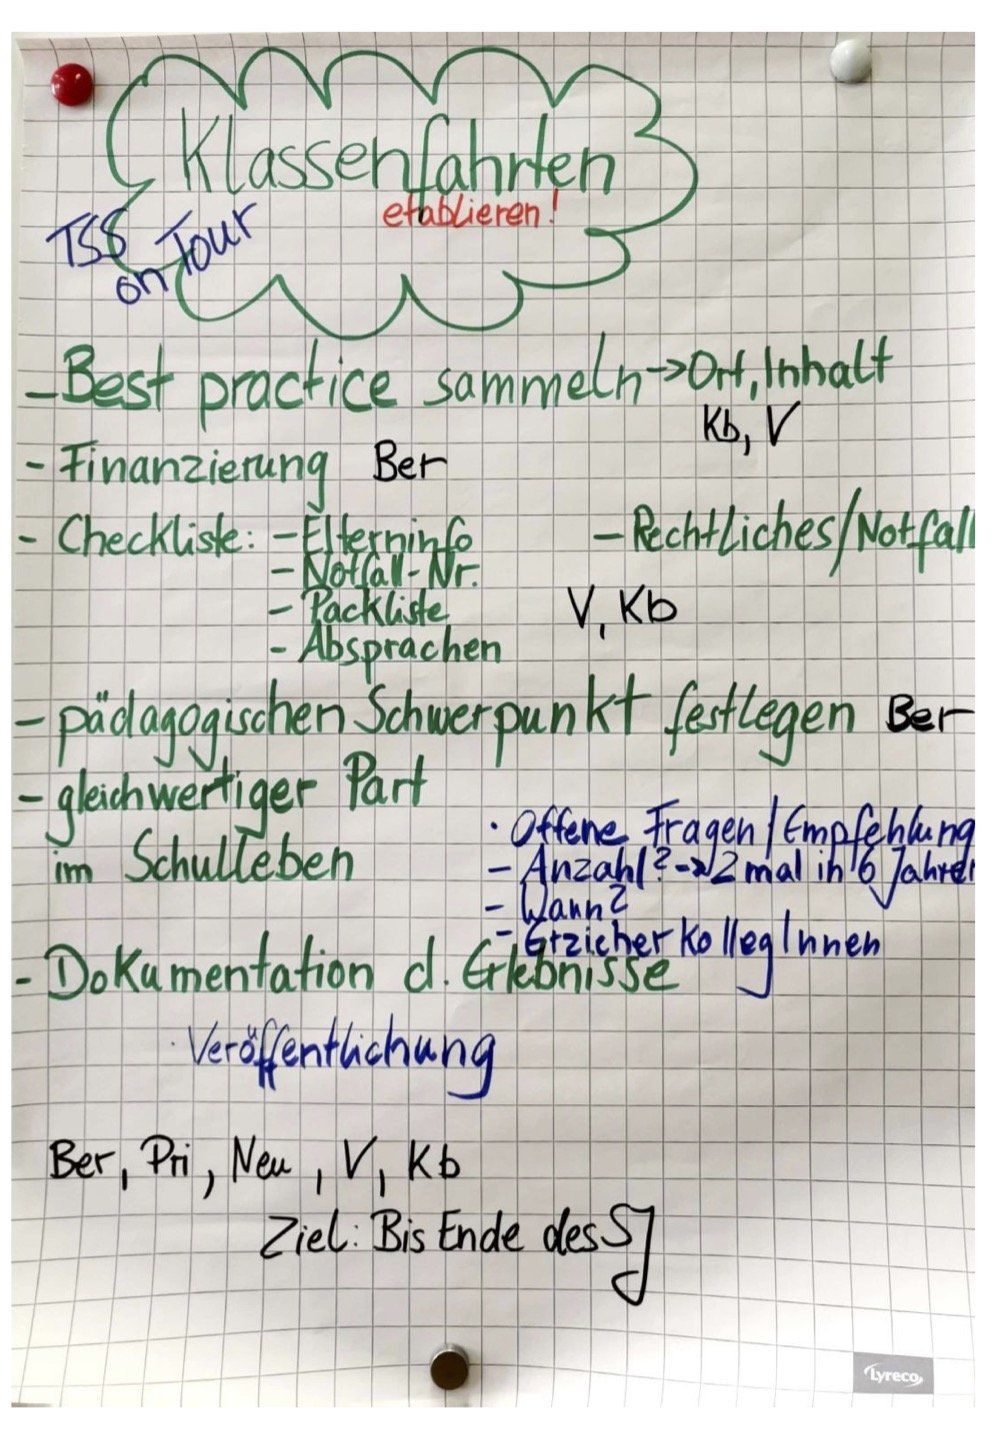 Klassenfahrten
etablieren!
TSS
on Tour
- Best practice sammeln -> Ort, Inhalt
Kb, V
- Finanzierung Ber
- Checkliste: - Elterninfo
- Notfall-Nr.
- Packliste
- Absprachen
- Rechtliches/Notfall
V, Kb
- pädagogischen Schwerpunkt festlegen Ber
- gleichwertiger Part
im Schulleben
· Offene Fragen / Empfehlung
- Anzahl? -> 2 mal in 6 Jahren
- Wann?
- ErzieherkollegInnen
- Dokumentation d. Erlebnisse
· Veröffentlichung
Ber, Pri, Neu, V, Kb
Ziel: Bis Ende des SJ
Lyreco